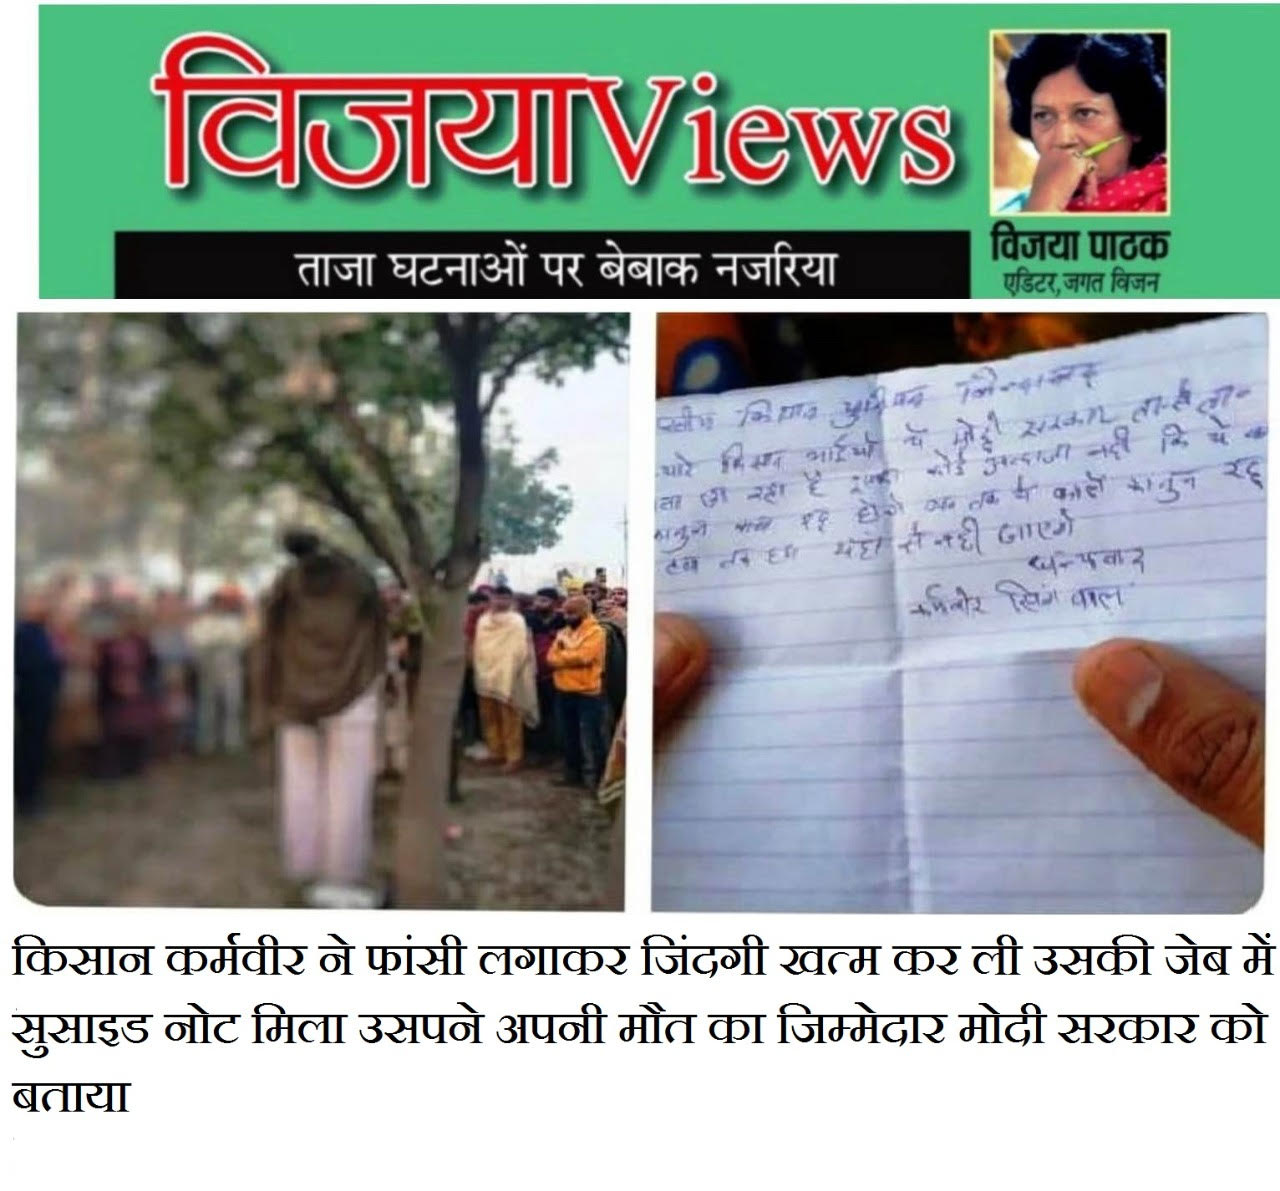 विजयाViews
ताजा घटनाओं पर बेबाक नजरिया
विजया पाठक
एडिटर, जगत विजन
किसान युनियन
किसान भाईयों ये मोदी सरकार
रहा है इसकी कोई अन्दाजा नही कि ये
रद्द होगे जब तक ये काले कानुन रद्द
से नही जाएगे
धन्यवाद
कर्मवीर सिंगवाल
किसान कर्मवीर ने फांसी लगाकर जिंदगी खत्म कर ली उसकी जेब में
सुसाइड नोट मिला उसपने अपनी मौत का जिम्मेदार मोदी सरकार को
बताया